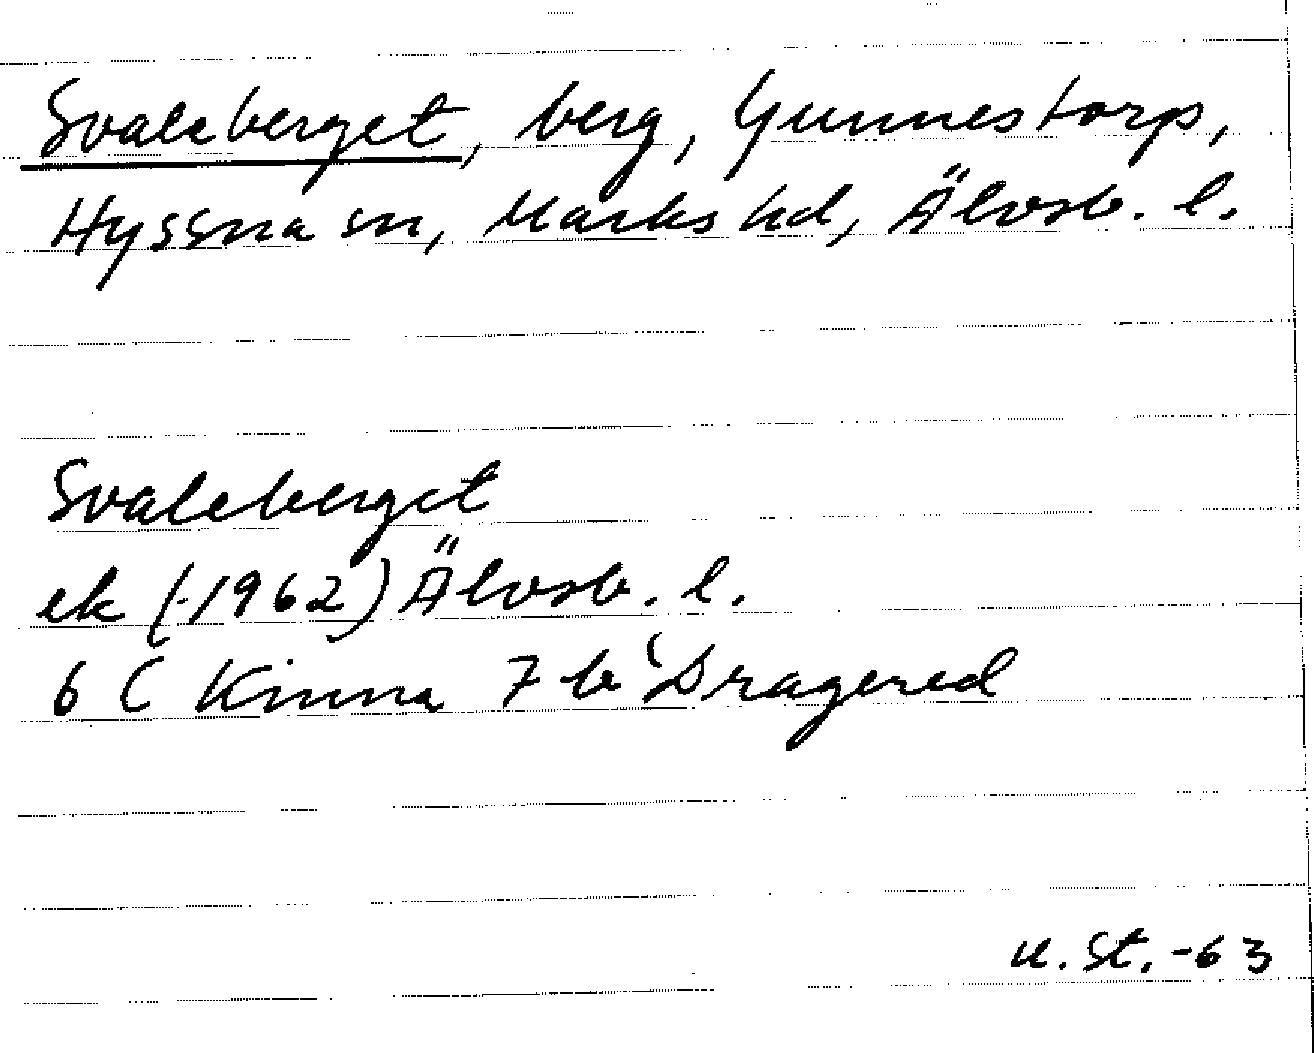 Svaleberget, berg, Gunnestorp,
Hyssna sn, Marks hd, Älvsb. l.
Svaleberget
ek (-1962) Älvsb. l.
6 C Kinna 7 b Dragered
U. St. -63